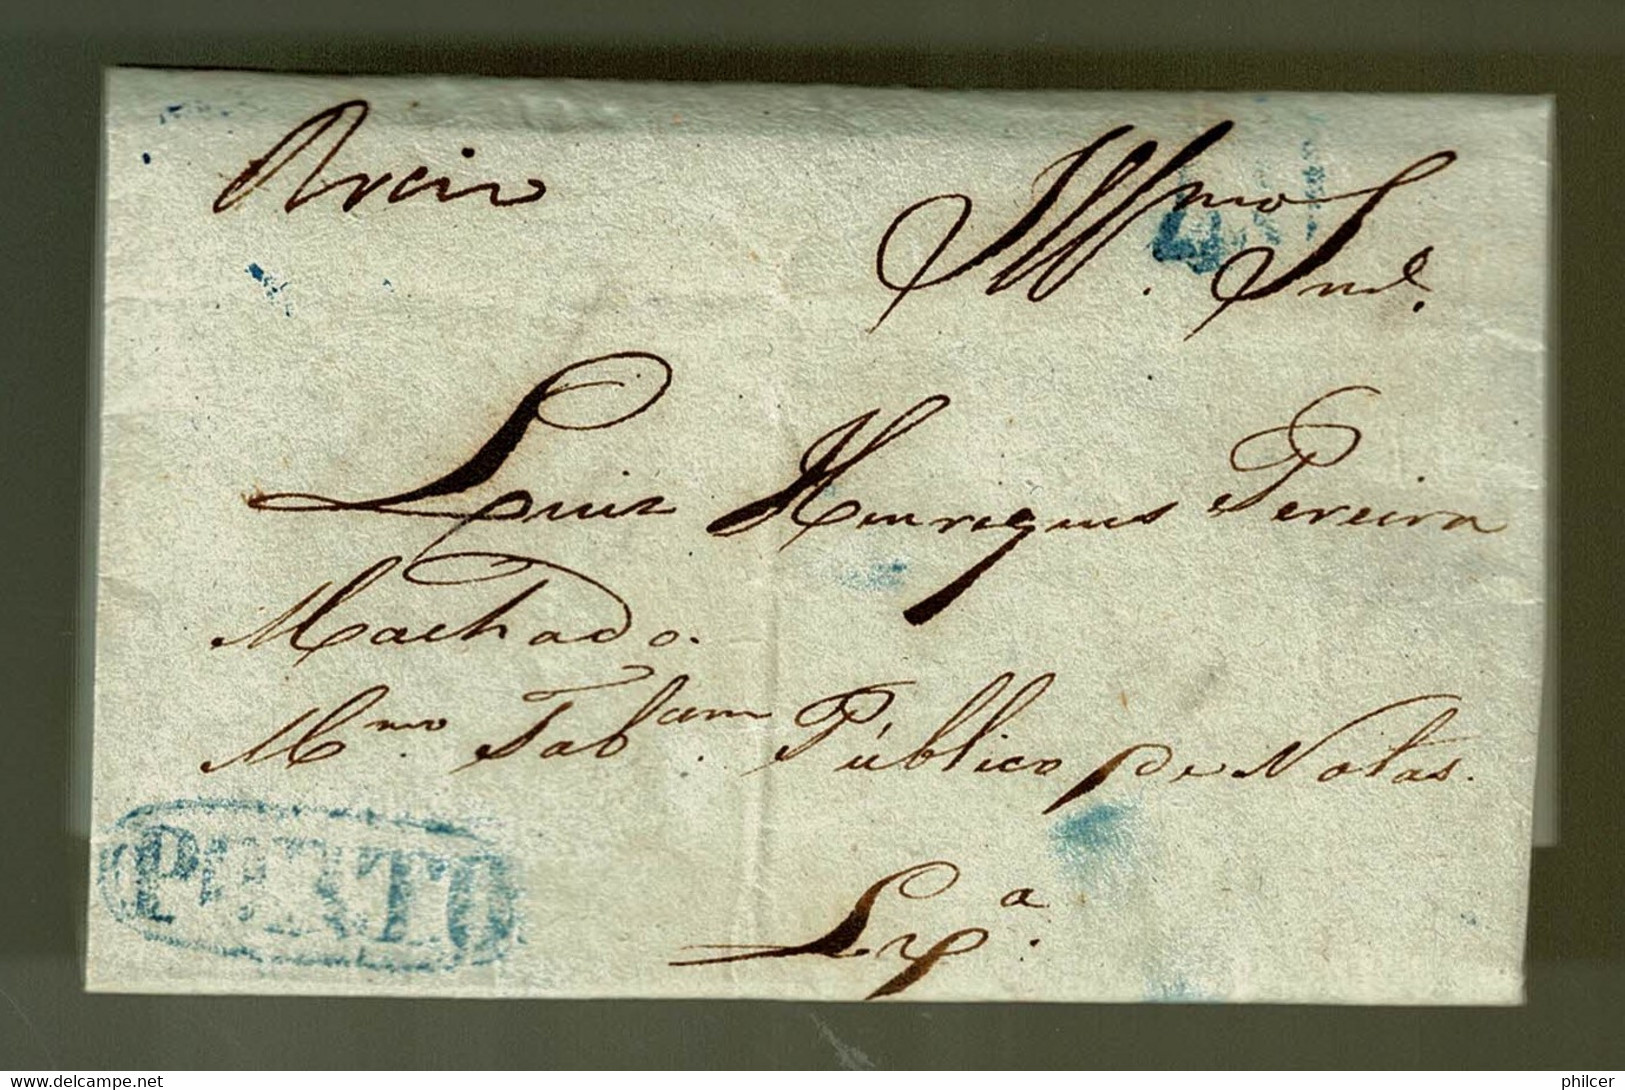 Ill.mo Snr.
Luiz Henriques Pereira
Machado.
M.mo Tab.am Público de Notas.
Lxª.
PORTO
delcampe.net
philcer